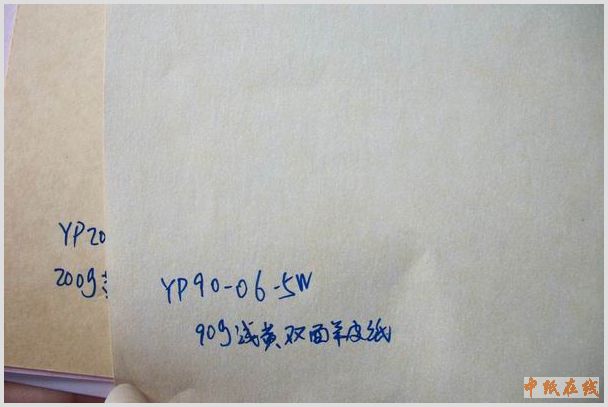 YP20
200g
YP90-06-5W
90g浅黄双面羊皮纸
中纸在线